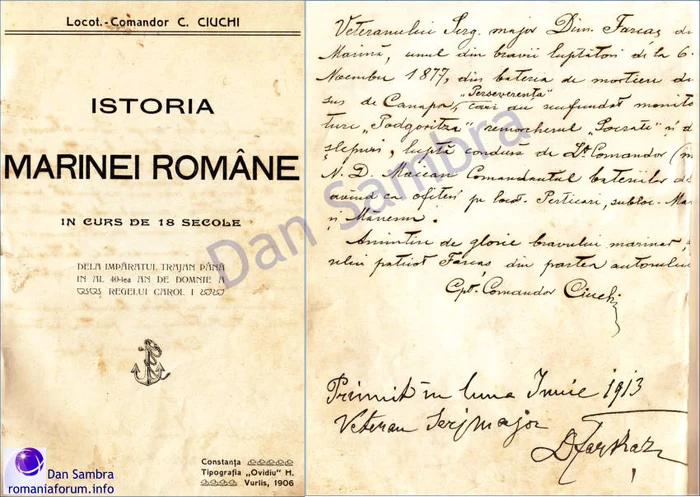 Locot.-Comandor C. CIUCHI
ISTORIA
MARINEI ROMÂNE
IN CURS DE 18 SECOLE
DELA IMPĂRATUL TRAJAN PÂNĂ
IN AL 40-lea AN DE DOMNIE A
REGELUI CAROL I
Constanța
Tipografia „Ovidiu" H.
Vurlis, 1906
Dan Sambra
romaniaforum.info
Veteranului Serg. major Dim. Farcaș di
Marină, unul din bravii luptători de la 6
Noembre 1877, din bateria de mortiere de
„Perseverența"
sus de Canapa, cari au scufundat monito
turc „Podgoritza" remorcherul „Socrati" și
șlepuri, luptă condusă de Lt. Comandor
N. D. Maican Comandantul bateriilor
avînd ca ofițeri pe locot. Perticari, subloc.
și Manescu.
Amintire de glorie bravului marinar
patriot Farcaș din partea autorului
Cpt. Comandor Ciuchi
Primit în luna Iunie 1913
Veteran Serj major
D Farkaz
Dan Sambra